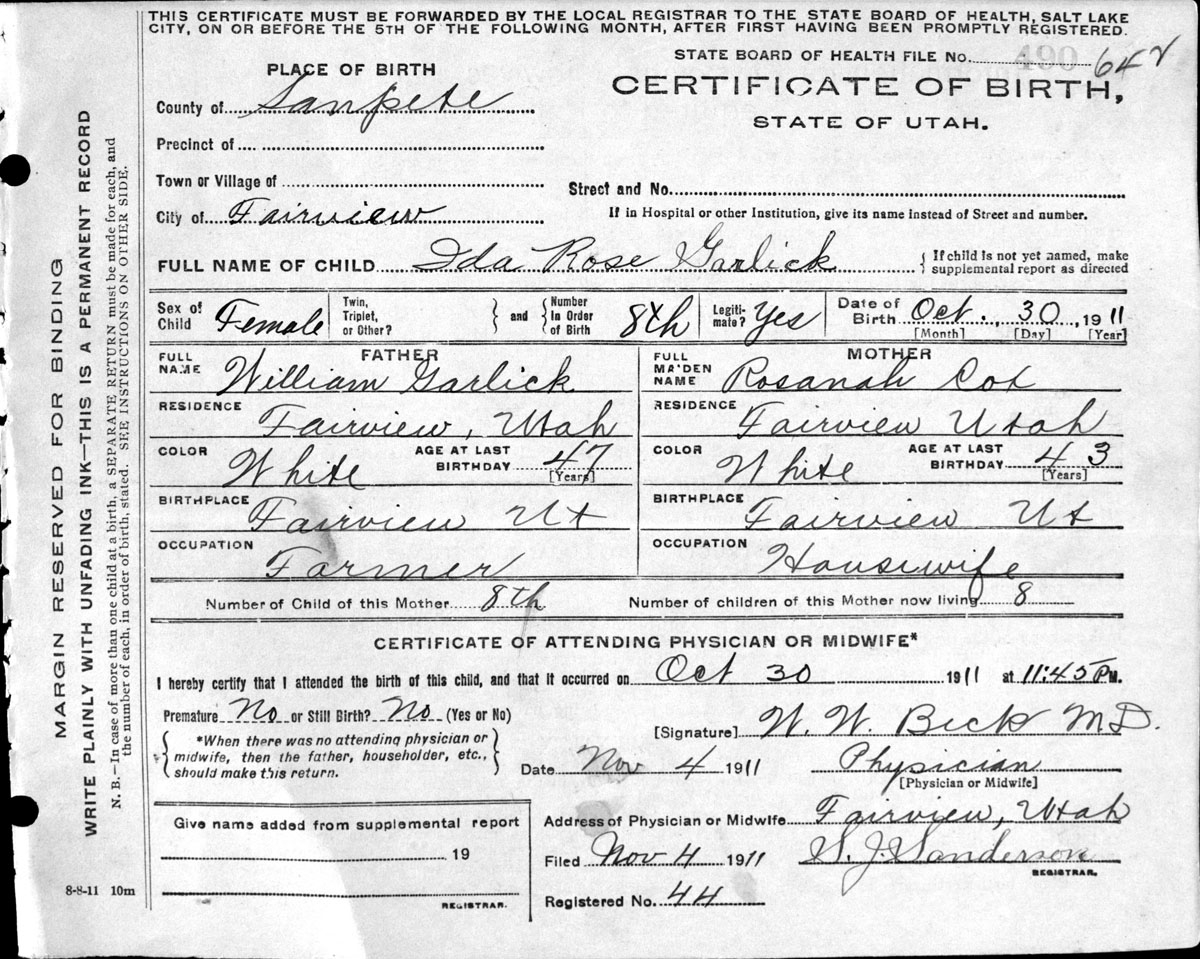 THIS CERTIFICATE MUST BE FORWARDED BY THE LOCAL REGISTRAR TO THE STATE BOARD OF HEALTH, SALT LAKE
CITY, ON OR BEFORE THE 5TH OF THE FOLLOWING MONTH, AFTER FIRST HAVING BEEN PROMPTLY REGISTERED.
STATE BOARD OF HEALTH FILE No. 490 642
PLACE OF BIRTH
CERTIFICATE OF BIRTH,
STATE OF UTAH.
County of Sanpete
Precinct of
Town or Village of
Street and No.
City of Fairview
If in Hospital or other Institution, give its name instead of Street and number.
FULL NAME OF CHILD Ida Rose Garlick
If child is not yet named, make
supplemental report as directed
Sex of Child Female
Twin, Triplet, or Other?
and
Number In Order of Birth 8th
Legiti-mate? Yes
Date of Birth Oct., 30, 1911
[Month] [Day] [Year]
FATHER
FULL NAME William Garlick
RESIDENCE Fairview, Utah
COLOR White AGE AT LAST BIRTHDAY 47 [Years]
BIRTHPLACE Fairview Ut
OCCUPATION Farmer
MOTHER
FULL MAIDEN NAME Rosanah Cox
RESIDENCE Fairview Utah
COLOR White AGE AT LAST BIRTHDAY 43 [Years]
BIRTHPLACE Fairview Ut
OCCUPATION Housewife
Number of Child of this Mother 8th Number of children of this Mother now living 8
CERTIFICATE OF ATTENDING PHYSICIAN OR MIDWIFE*
I hereby certify that I attended the birth of this child, and that it occurred on Oct 30 1911 at 11:45 P M.
Premature No or Still Birth? No (Yes or No)
[Signature] W. W. Beck M D.
*When there was no attending physician or
midwife, then the father, householder, etc.,
should make this return.
Date Nov 4 1911 Physician
[Physician or Midwife]
Give name added from supplemental report
19
REGISTRAR.
Address of Physician or Midwife Fairview, Utah
Filed Nov 4 1911 S. J. Sanderson
REGISTRAR.
Registered No. 44
8-8-11 10m
MARGIN RESERVED FOR BINDING
WRITE PLAINLY WITH UNFADING INK—THIS IS A PERMANENT RECORD
N. B.—In case of more than one child at a birth, a SEPARATE RETURN must be made for each, and
the number of each, in order of birth, stated. SEE INSTRUCTIONS ON OTHER SIDE.